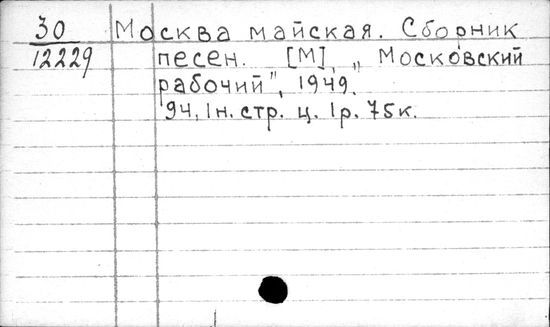 30 Москва майская. Сборник
12229 песен. [М], „Московский
рабочий", 1949.
94, 1 н. стр. ц. 1р. 75к.